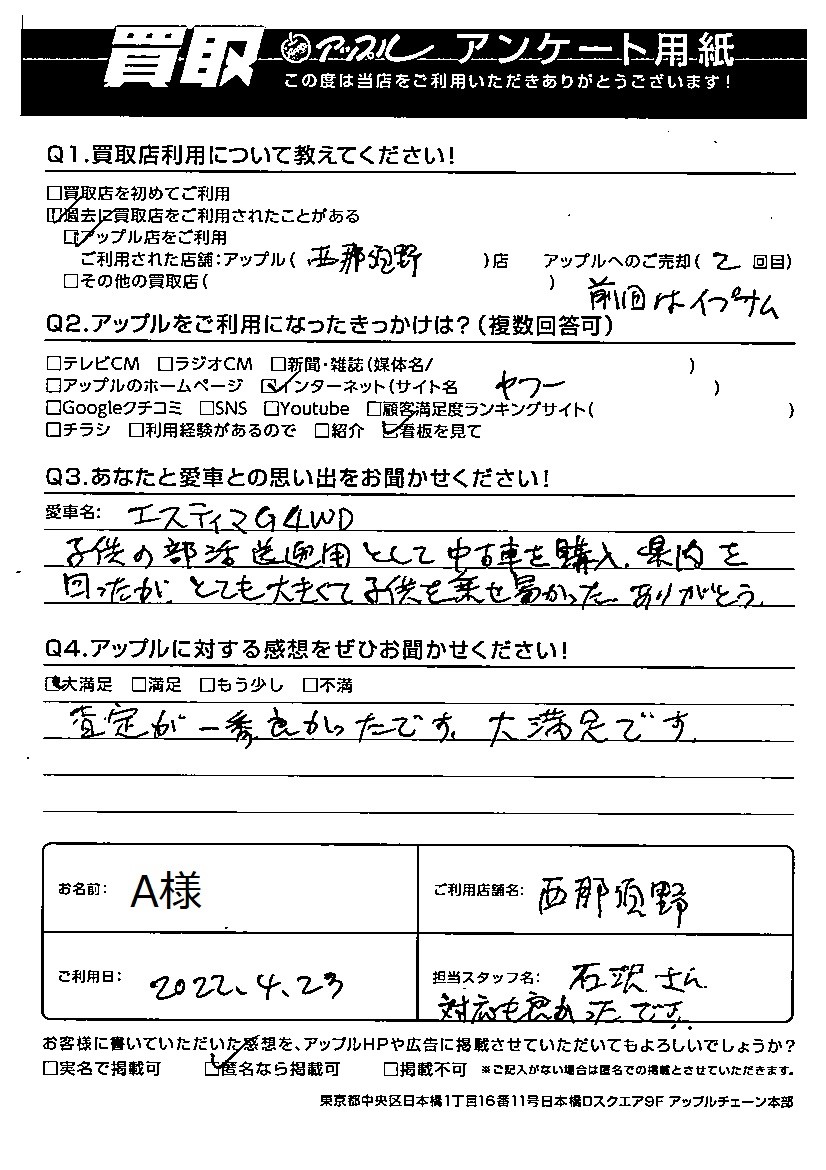 買取 アップル アンケート用紙
この度は当店をご利用いただきありがとうございます!
Q1.買取店利用について教えてください!
□買取店を初めてご利用
☑過去に買取店をご利用されたことがある
☑アップル店をご利用
ご利用された店舗:アップル( 西那須野 )店 アップルへのご売却( 2 回目)
□その他の買取店( )
前回はイプサム
Q2.アップルをご利用になったきっかけは?(複数回答可)
□テレビCM □ラジオCM □新聞・雑誌(媒体名/ )
□アップルのホームページ ☑インターネット(サイト名 ヤフー )
□Googleクチコミ □SNS □Youtube □顧客満足度ランキングサイト( )
□チラシ □利用経験があるので □紹介 ☑看板を見て
Q3.あなたと愛車との思い出をお聞かせください!
愛車名: エスティマG4WD
子供の部活送迎用として中古車を購入、県内を
回ったが、とても大きくて子供を乗せ易かった。ありがとう。
Q4.アップルに対する感想をぜひお聞かせください!
☑大満足 □満足 □もう少し □不満
査定が一番良かったです。大満足です。
お名前: A様
ご利用店舗名: 西那須野
ご利用日: 2022.4.23
担当スタッフ名: 石沢さん
対応も良かったです。
お客様に書いていただいた感想を、アップルHPや広告に掲載させていただいてもよろしいでしょうか?
□実名で掲載可 ☑匿名なら掲載可 □掲載不可 ※ご記入がない場合は匿名での掲載とさせていただきます。
東京都中央区日本橋1丁目16番11号日本橋Dスクエア9F アップルチェーン本部